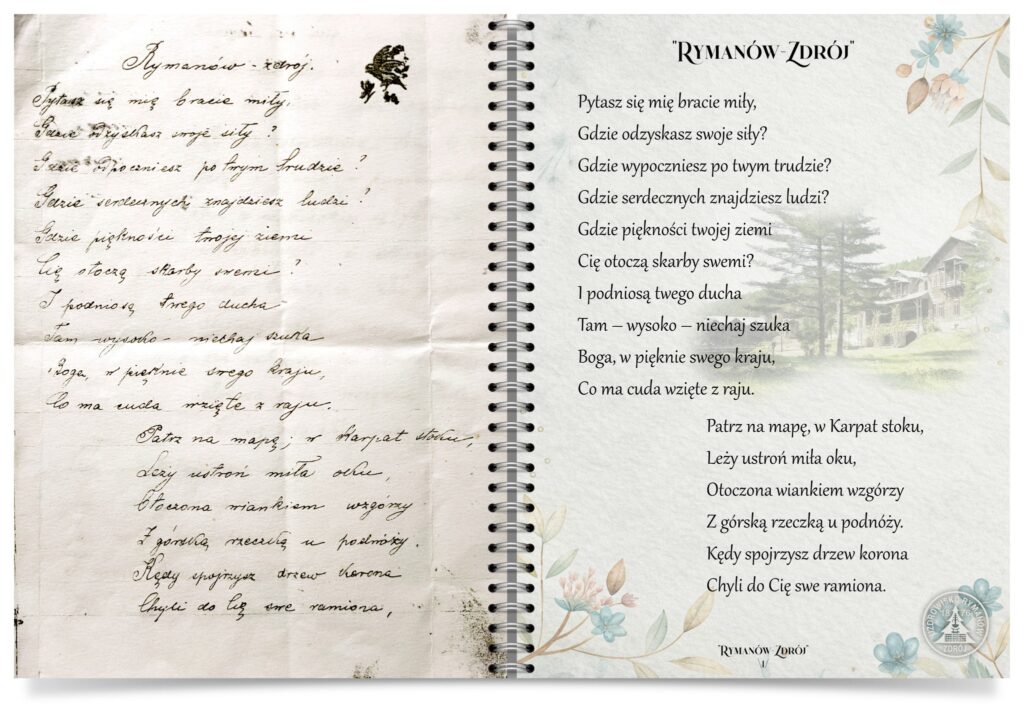 Rymanów-zdrój.
Pytasz się mię bracie miły,
Gdzie odzyskasz swoje siły?
Gdzie odpoczniesz po twym trudzie?
Gdzie serdecznych znajdziesz ludzi?
Gdzie piękności twojej ziemi
Cię otoczą skarby swemi?
I podniosą twego ducha
Tam wysoko - niechaj szuka
Boga, w pięknie swego kraju,
Co ma cuda wzięte z raju.
Patrz na mapę; w Karpat stoku,
Leży ustroń miła oku,
Otoczona wiankiem wzgórzy
Z górską rzeczką u podnóży.
Kędy spojrzysz drzew korona
Chyli do Cię swe ramiona,
"Rymanów-Zdrój"
Pytasz się mię bracie miły,
Gdzie odzyskasz swoje siły?
Gdzie wypoczniesz po twym trudzie?
Gdzie serdecznych znajdziesz ludzi?
Gdzie piękności twojej ziemi
Cię otoczą skarby swemi?
I podniosą twego ducha
Tam – wysoko – niechaj szuka
Boga, w pięknie swego kraju,
Co ma cuda wzięte z raju.
Patrz na mapę, w Karpat stoku,
Leży ustroń miła oku,
Otoczona wiankiem wzgórzy
Z górską rzeczką u podnóży.
Kędy spojrzysz drzew korona
Chyli do Cię swe ramiona.
"Rymanów-Zdrój"
1
UZDROWISKO RYMANÓW
1876
ZDRÓJ